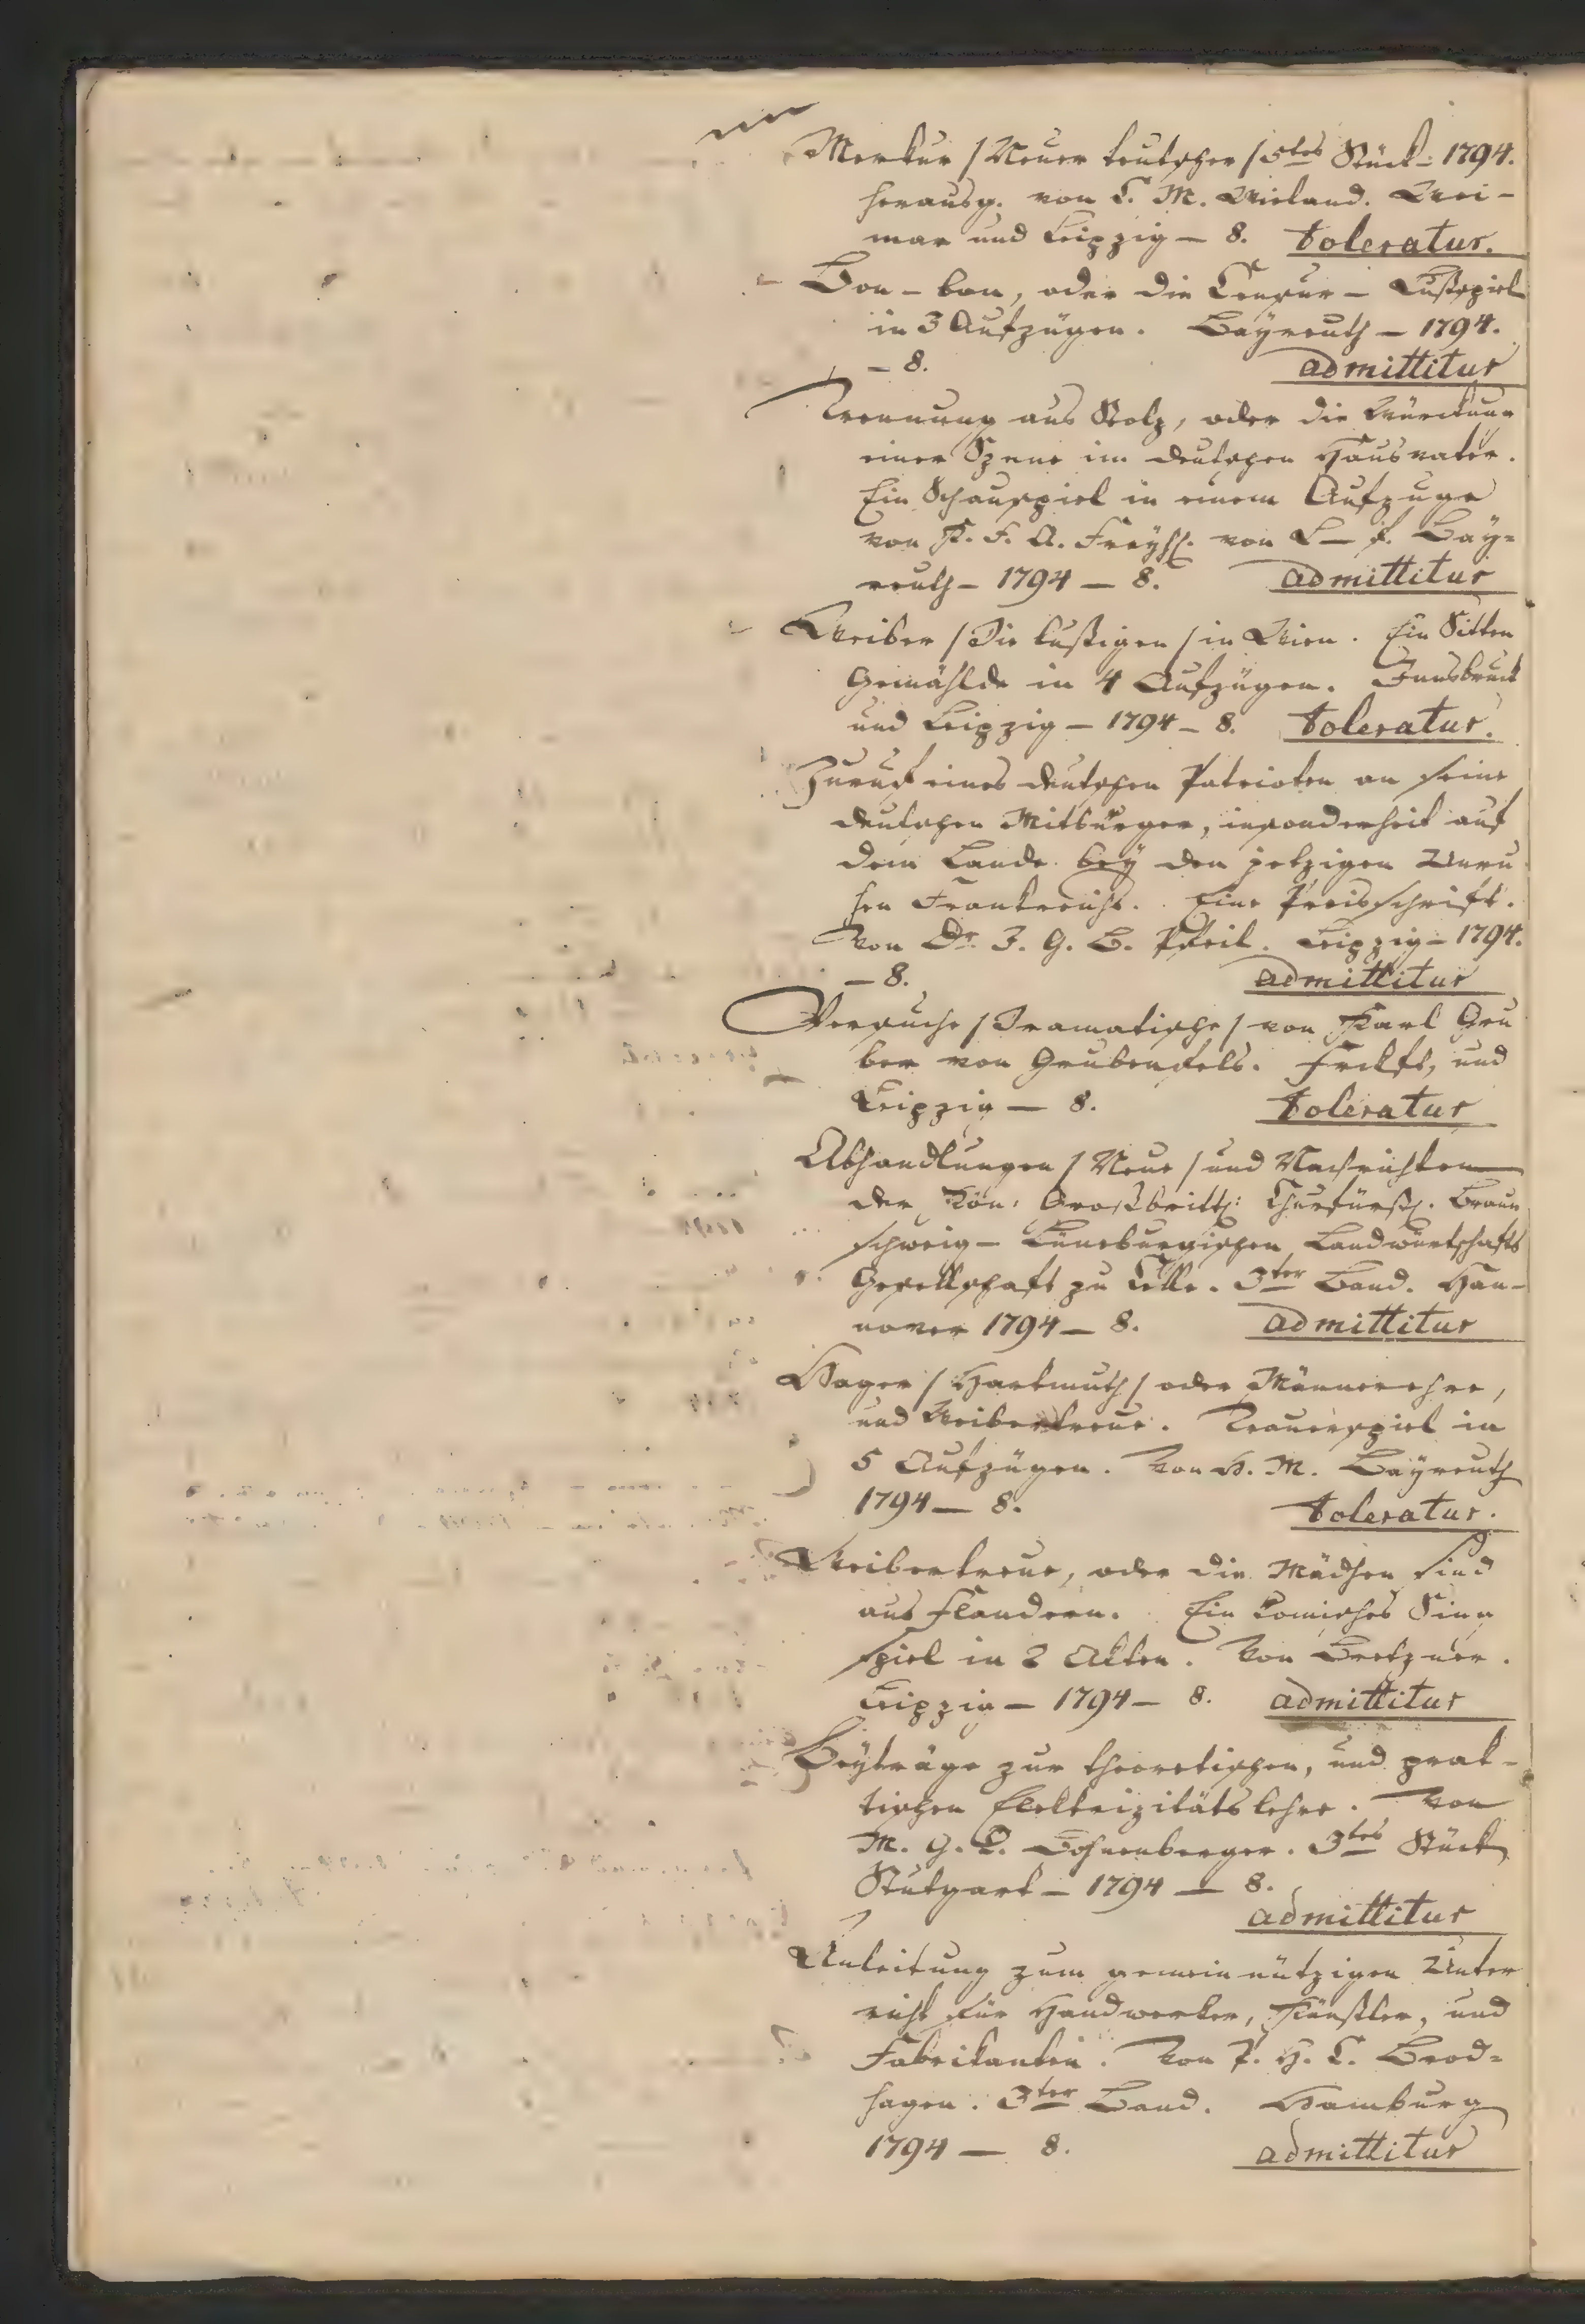 Merkur /Neuer teutscher/ 5tes Stück: 1794.
herausg. von C. M. Wieland. Wei-
mar und Leipzig — 8. toleratur.
Bon-bon, oder die Censur — Lustspiel
in 3 Aufzügen. Bayreuth — 1794.
— 8. admittitur
Trennung aus Stolz, oder die Würckung
einer Szene im deutschen Hausvater.
Ein Schauspiel in einem Aufzuge
von K. F. A. Freyh. von L—f. Bay-
reuth — 1794 — 8. admittitur
Weiber /Die lustigen/ in Wien. Ein Sitten
Gemählde in 4 Aufzügen. Innsbruck
und Leipzig — 1794 — 8. toleratur.
Zuruf eines deutschen Patrioten an seine
deutschen Mitbürger, insonderheit auf
dem Lande bey den jetzigen Unru
hen Frankreichs. Eine Preisschrift.
Von Dr. J. G. B. Pfeil. Leipzig — 1794.
— 8. admittitur
Versuche /Dramatische/ von Karl Gru
ber von Grubenfels. Frckft, und
Leipzig — 8. toleratur
Abhandlungen /Neue/ und Nachrichten
der Kön: Großbritt: Churfürstl. Braun
schweig-Lüneburgischen Landwürtschafts
Gesellschaft zu Celle. 3ter Band. Han-
nover 1794 — 8. admittitur
Hager /Hartmuth/ oder Männerehre,
und Weibertreue. Trauerspiel in
5 Aufzügen. Von H. M. Bayreuth
1794 — 8. toleratur.
Weibertreue, oder die Mädchen sind
aus Flandern. Ein komisches Sing
spiel in 2 Akten. Von Bretzner.
Leipzig — 1794 — 8. admittitur
Beyträge zur theoretischen, und prak-
tischen Elektrizitätslehre. Von
M. G. C. Bohnenberger. 3tes Stück
Stutgart — 1794 — 8.
admittitur
Anleitung zum gemeinnützigen Unter
richt für Handwerker, Künstler, und
Fabrikanten. Von P. H. C. Brod-
hagen. 3ter Band. Hamburg
1794 — 8. admittitur